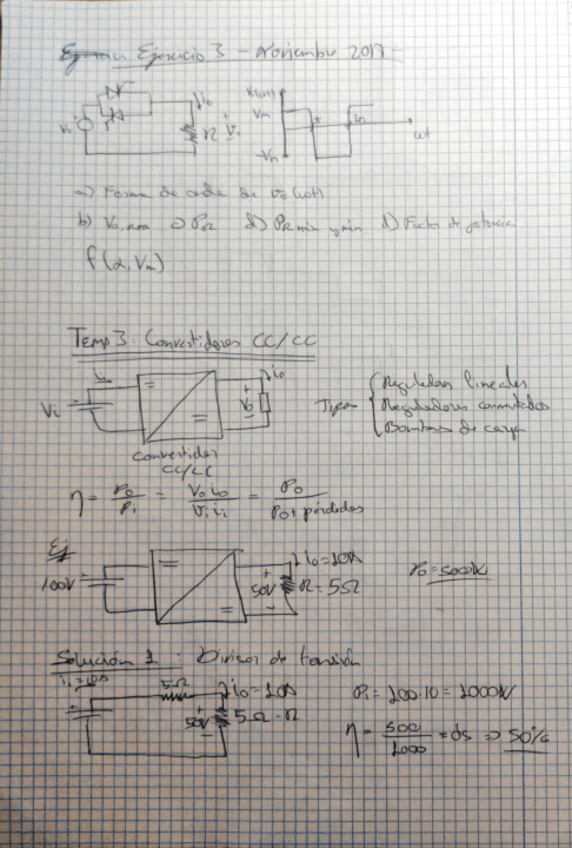 Ejercicio 3 - Noviembre 2017
Vm
-Vm
π
2π
ωt
io
R
a) Forma de onda de Vo(ωt)
b) Vo,rms c) PR d) PR máx y mín d) Factor de potencia
f(α, Vm)
Tema 3. Convertidores CC/CC
Vi
io
Vo
Tipos
Reguladores lineales
Reguladores conmutados
Bombas de carga
Convertidor
CC/CC
η = Po/Pi = Vo io/Vi ii = Po/Po+pérdidas
Ej
100V
50V
io=10A
R=5Ω
Po=500W
Solución 1: Divisor de tensión
ii=10A
5Ω
io=10A
50V
5Ω=R
Pi=100·10=1000W
η = 500/1000 = 0,5 ⇒ 50%